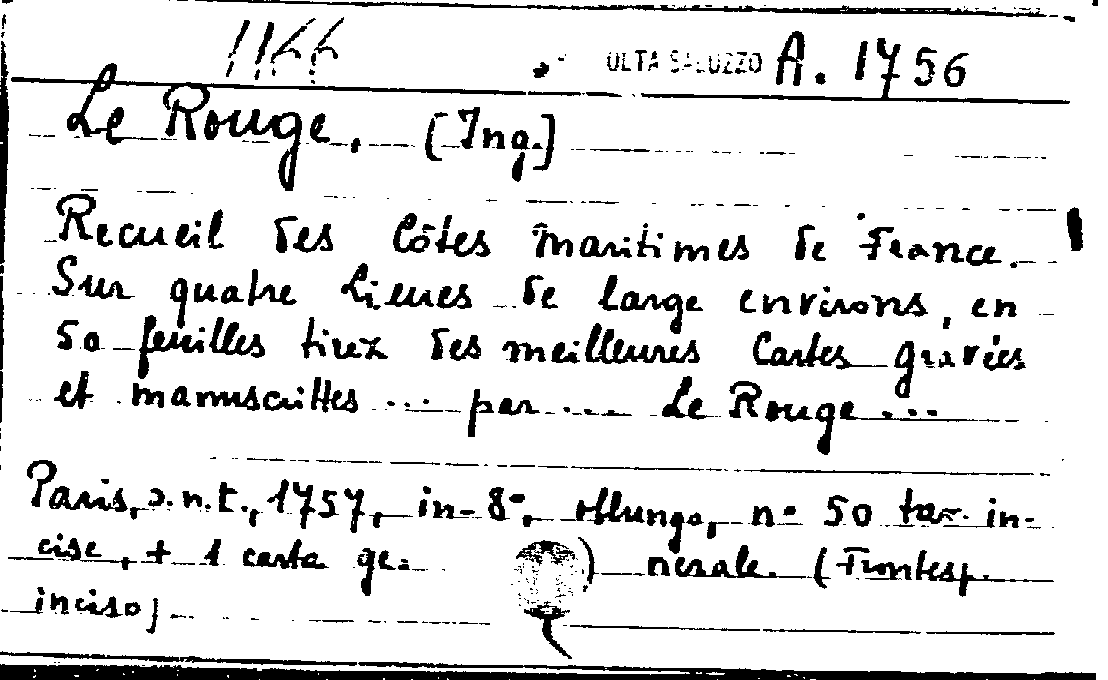 1166 OLTA SALUZZO A. 1756
Le Rouge, (Ing.)
Recueil des Côtes maritimes de France.
Sur quatre Lieues de large environs, en
50 feuilles tirez des meilleures Cartes gravées
et manuscrittes ... par ... Le Rouge ...
Paris, s.n.t., 1757, in-8°, oblungo, n° 50 tav. in-
cise, + 1 carta ge= nerale. (Frontesp.
inciso)